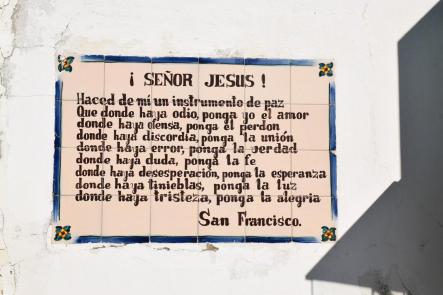 ¡ SEÑOR JESUS !
Haced de mí un instrumento de paz
Que donde haya odio, ponga yo el amor
donde haya ofensa, ponga el perdon
donde haya discordia, ponga la unión
donde haya error, ponga la verdad
donde haya duda, ponga la fe
donde haya desesperación, ponga la esperanza
donde haya tinieblas, ponga la luz
donde haya tristeza, ponga la alegria
San Francisco.